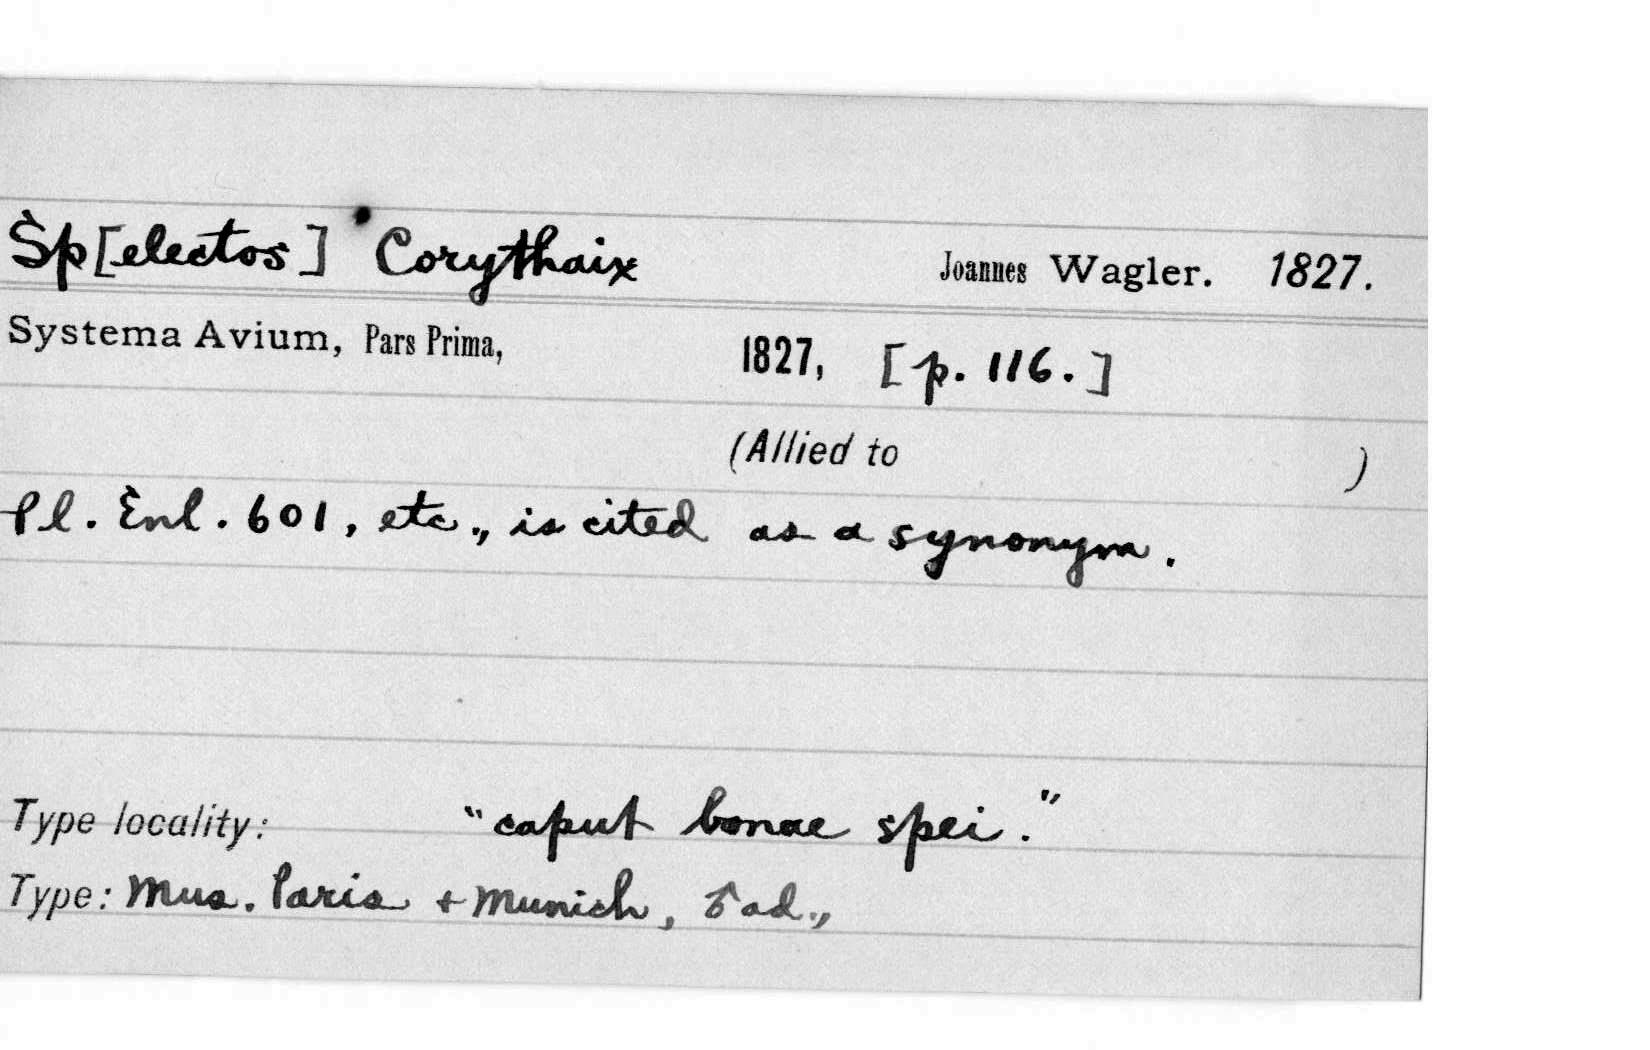 Sp[electos] Corythaix Joannes Wagler. 1827.
Systema Avium, Pars Prima, 1827, [p. 116.]
(Allied to )
Pl. Enl. 601, etc., is cited as a synonym.
Type locality: "caput bonae spei."
Type: Mus. Paris + Munich, ♂ ad.,